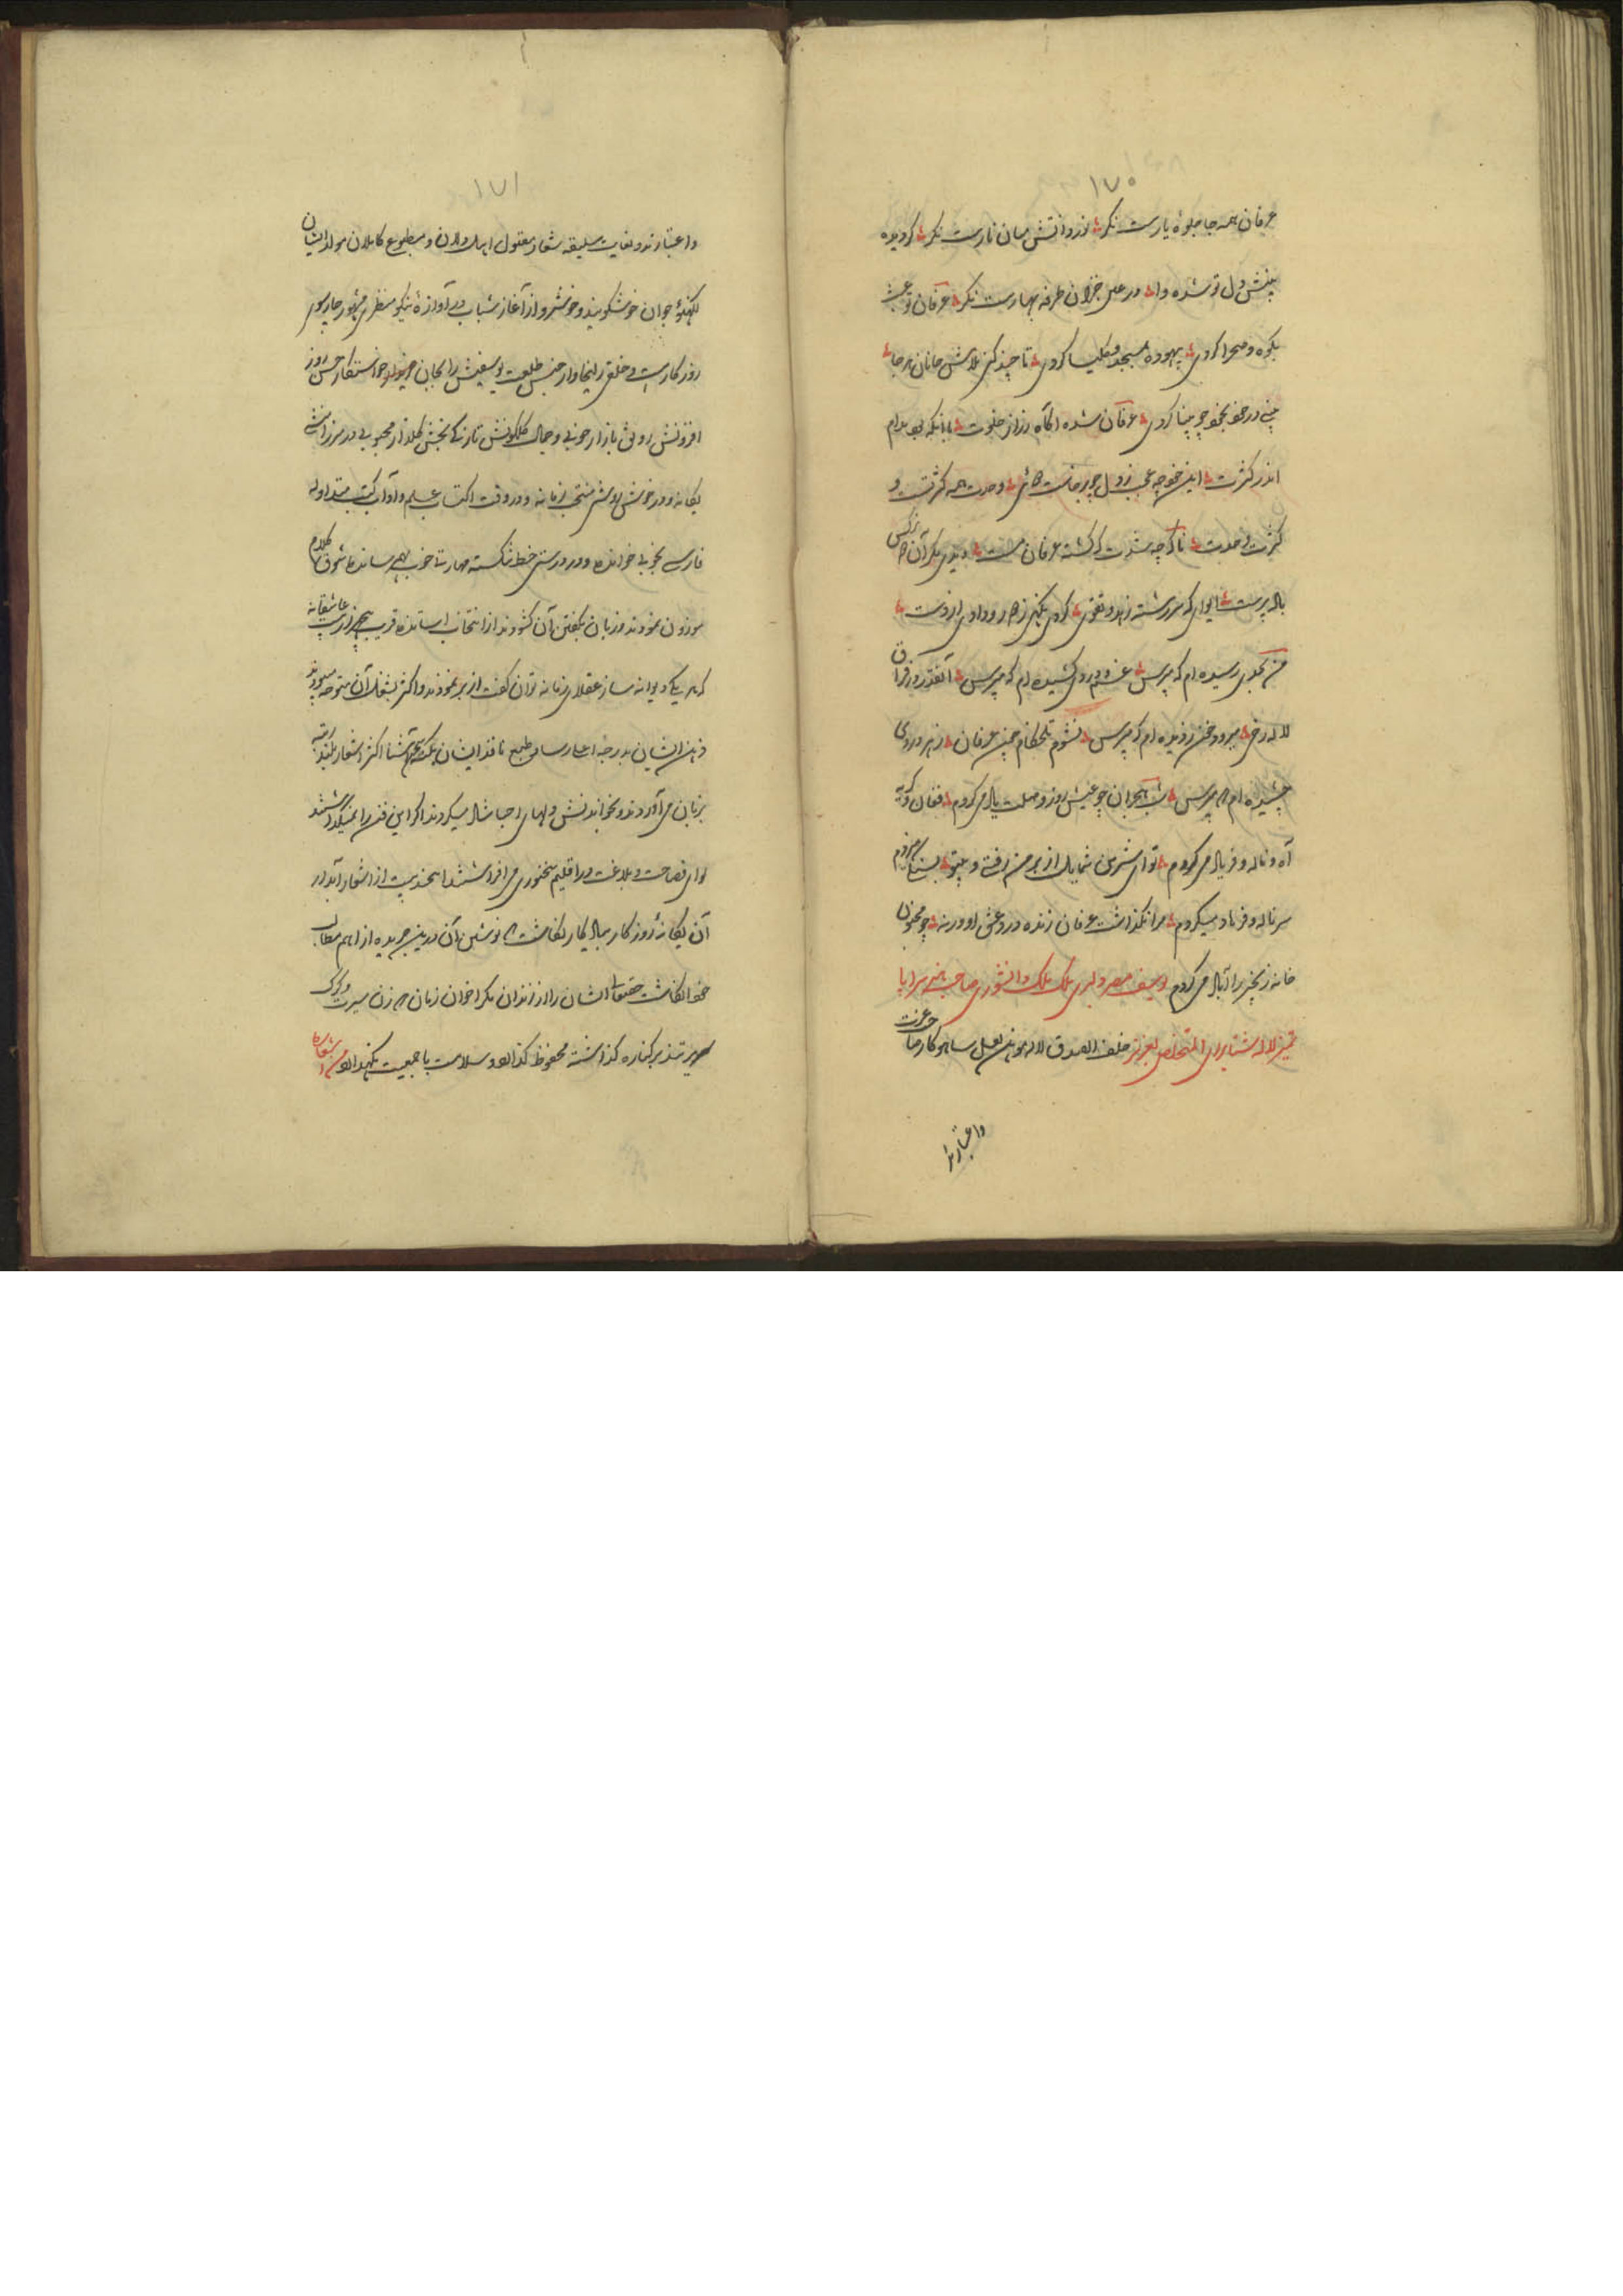 ۱۷۰
عرفان همه جا جلوه یارست نگر نور و آتش میان نارست نگر گر دیده
بینش دل تو شده وا در عین خزان طرفه بهارست نگر عرفان تو عبث
بکوه و صحرا گردی بیهوده بمسجد و کلیسا گردی تا چند کنی تلاش جانان هر جا
بینی در خود بخود چو بینا گردی عرفان شده آگاه ز راز خلوت با آنکه بود مدام
اندر کثرت این خوجه عجب ز دل چو برخاست وحدت همه کثرتست و
کثرت وحدت ناگه چه شدت که گشته عرفان مست
باده پرست ایوای که سررشته زهد و تقوی کردی از دست
من بجوی رسیده ام که مپرس غم و دردی کشیده ام که مپرس آنقدر در فراق
لاله رخی من ندیده ام که مپرس نشوم تلخکام چون عرفان زهر دردی
چشیده ام که مپرس شب هجران چو عیش روز وصلت یاد می کردم فغان و گریه
آه و ناله و فریاد می کردم تو ای شیرین شمایل از بر من رفتی و بیتو
سر ناله و فریاد میکردم مرا نگذاشت عرفان زنده درد عشق او ورنه چو مجنون
خانه زنجیر را آباد می کردم یوسف مصر دلبری ملک ملک دانشوری صاحب سراپا
تمیز لاله شتاب رای المتخلص بعزیز خلف الصدق لاله موهن لعل ساهوکار صاحب عزت
واعتبارند
۱۷۱
واعتبارند و بغایت سلیقه شعار مقبول اهل دلان و مطبوع کاملان مولد ایشان
لکهنؤ جوان خوشگویند و خوشرو از آغاز شباب در آوازه نیکو منظری مشهور چارسوی
روزگار است و خلق زلیخاوار جنس طلعت یوسفیش را بجان خریدار خواستگار حسن روز
افزونش رونق بازار خوبی و جمال گلگونش تازگی بخش گلزار محبوبی در میرزا منشی
یگانه و در خوش روشی منتخب زمانه و در وقت اکتساب علم و آداب کتب متداوله
فارسی بخوبی خوانده و در درستی خط شکسته مهارتی خوب بهم رسانده شوق کلام
موزون نمودند و زبان بگفتن آن گشودند از انتخاب اساتذه قریب پنجهزار بیت عاشقانه
که هر یک دیوانه ساز عقلای زمانه توان گفت از بر نمودند و اکثر بشغل آن متوجه میبودند
ذهن ایشان بدرجه اعلی رسا و طبع نافذ ایشان بنکته سنجی آشنا اکثر اشعار بلند رتبه
بزبان می آوردند و بخواندنش دلهای احبا شاد میکردند اگر این فن را نمیگذاشتند
لوای فصاحت و بلاغت در اقلیم سخنوری می افراشتند این چند بیت از اشعار آبدار
آن یگانه روزگار بیادگار نگاشت که نوشتن آن درین جریده از اهم مطالب
خود انگاشت حق تعالی ایشان را از گزند آن مکر اخوان زمان که زن سیرت و گرگ
سریرتند بر کناره گذاشته محفوظ گذارد و سلامت با جمعیت نگهدارد من اشعاره